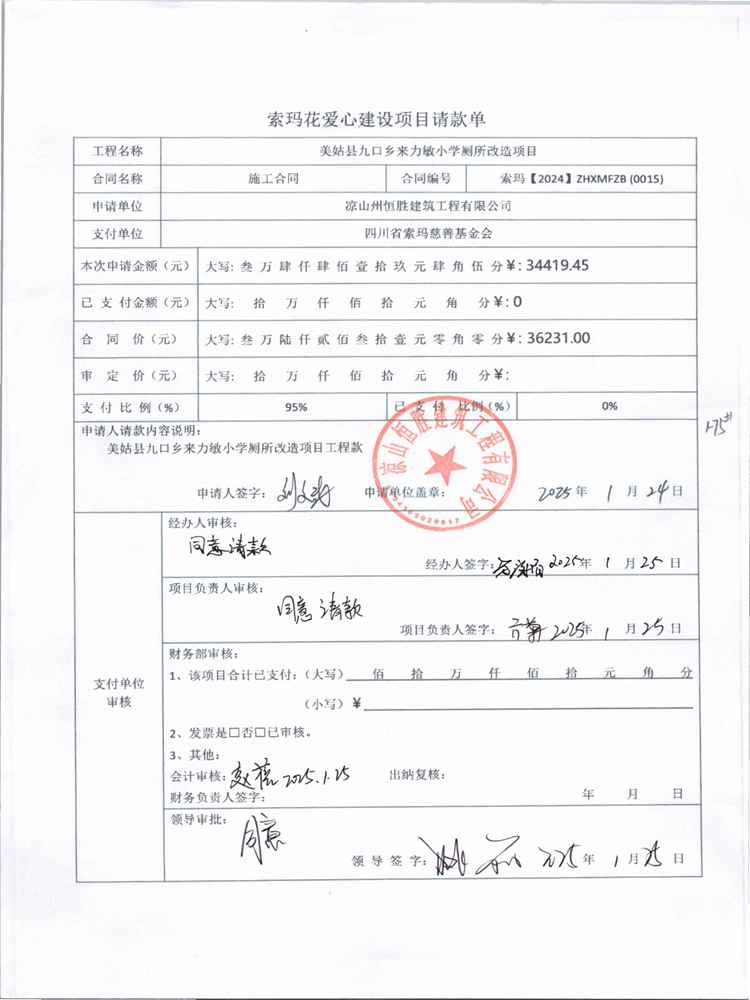 索玛花爱心建设项目请款单
工程名称 美姑县九口乡来力敏小学厕所改造项目
合同名称 施工合同 合同编号 索玛【2024】ZHXMFZB (0015)
申请单位 凉山州恒胜建筑工程有限公司
支付单位 四川省索玛慈善基金会
本次申请金额（元） 大写: 叁 万 肆 仟 肆 佰 壹 拾 玖 元 肆 角 伍 分 ¥: 34419.45
已 支 付金额（元） 大写: 拾 万 仟 佰 拾 元 角 分 ¥: 0
合 同 价（元） 大写: 叁 万 陆 仟 贰 佰 叁 拾 壹 元 零 角 零 分 ¥: 36231.00
审 定 价（元） 大写: 拾 万 仟 佰 拾 元 角 分 ¥:
支 付 比 例（%） 95% 已 支 付 比例（%） 0%
申请人请款内容说明:
美姑县九口乡来力敏小学厕所改造项目工程款
申请人签字: 申请单位盖章: 2025 年 1 月 24 日
凉山恒胜建筑工程有限公司
支付单位
审核
经办人审核:
同意请款
经办人签字: 2025年 1 月 25 日
项目负责人审核:
同意请款
项目负责人签字: 2025年 1 月 25 日
财务部审核:
1、该项目合计已支付:（大写） 佰 拾 万 仟 佰 拾 元 角 分
（小写）¥
2、发票是□否□已审核。
3、其他:
会计审核: 2025.1.25 出纳复核:
财务负责人签字: 年 月 日
领导审批:
同意
领 导 签 字: 2025年 1 月 25 日